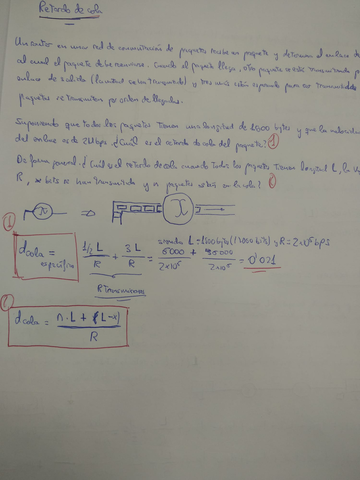 Retardo de cola
Un router en una red de conmutación de paquetes recibe un paquete y determina el enlace de
al cual el paquete debe reenviarse. Cuando el paquete llega, otro paquete está transmitiendo
enlace de salida (la mitad se ha transmitido) y tres más están esperando para ser transmitidos
paquetes se transmiten por orden de llegada.
Suponiendo que todos los paquetes tienen una longitud de 1500 bytes y que la velocidad
del enlace es de 2Mbps ¿Cuál es el retardo de cola del paquete? 1
De forma general ¿Cuál es el retardo de cola cuando todos los paquetes tienen longitud L, la
R, x bits se han transmitido y n paquetes están en la cola? 2
x ⇒ x
1
dcola = 1/2 L / R + 3L / R = siendo L=1500 bytes (12000 bits) y R=2x10⁶ bps
específico 6000 / 2x10⁶ + 36000 / 2x10⁶ = 0'021
2
dcola = n·L + (L-x) / R